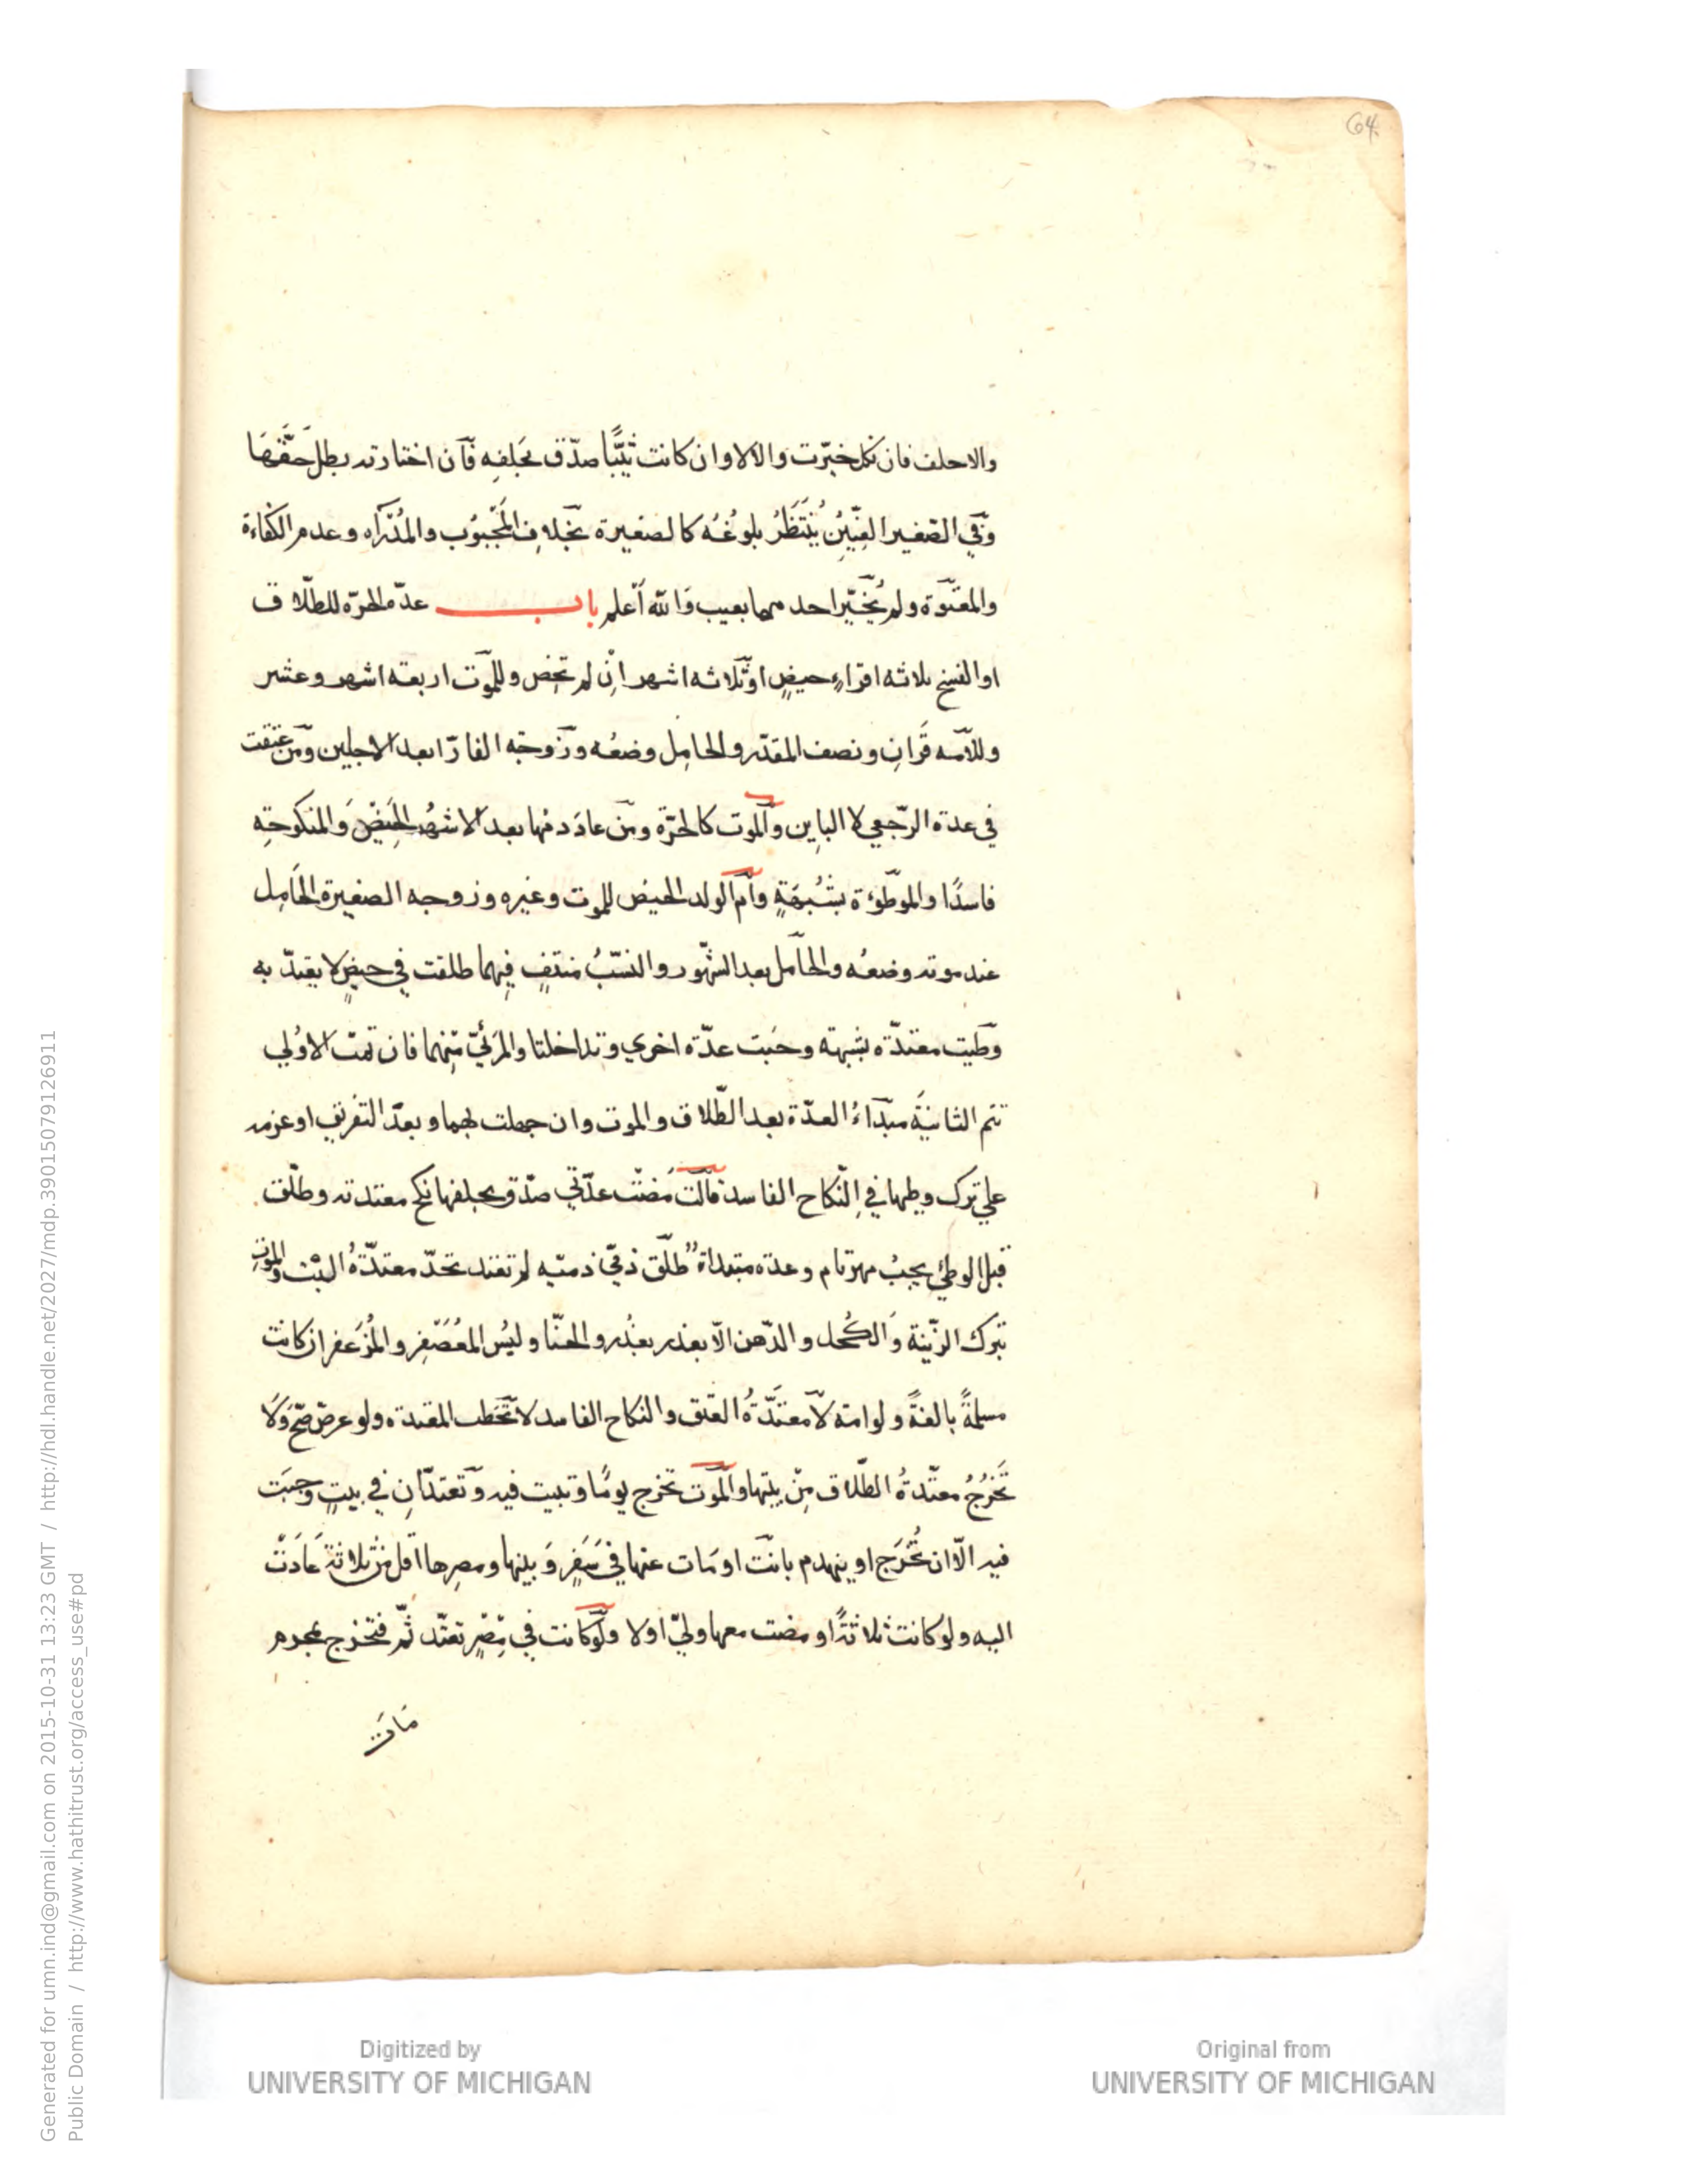 64
والا حلف فان نكل خيّرت والا لا وان كانت ثيّبًا صدّق بحَلِفِه فآن اختارته بطل حقّهَا
وفّي الصّغير العِنّينُ يُنْتَظَرُ بلوغُه كالصغيرة بخِلافِ المَجْبُوْب والمُدْرَاه وعدم الكفاءة
والمعتوة ولم يُخيّر احد مهما بعيب وَالله أعلم باب عدّه الحرّه للطّلاق
او الفسخ ثلاثه اقراءٍ حيضٍ اوثّلاثه اشهر انْ لم تحِض وللمّوت اربعه اشهر وعشر
وللآمه قَرانِ ونصف المقدّر والحامِل وضعُه وزّوجَه الفارّ ابعد الاجلين ومّن عتقت
في عدة الرّجعي لا البايِن وآلموت كالحرّة ومّن عادَ دمها بعد الاشهُرِ الحَيْضَ وَالمنكوحَه
فاسدًا والموطؤة بشُبهَةٍ وآم الولد الحيض للموت وغيره وزوجه الصغيرة الحَامِل
عند موته وضعُه والحآمل بعد الشّهور والنسّبُ منتفٍ فِيهما طلقت في حيضٍ لا يعتدّ به
وّطيت معتدّه بشبهة وجبت عدّه اخري وتداخلتا والمرَئيّ مِنهما فان تمّت الاوُلي
تتم الثانيَة مبّدَاءُ العدّة بعد الطّلاق والموت وان جهلت بهما وبعدّ التفريق او عزمه
علي ترك وطيها في النّكاح الفاسد قآلت مُضَت عدّتي صدّق بحلفها نكح معتدته وطلّق
قبل الوطئ يجبُ مهر تام وعدة مبتداة طلّق ذمّي ذمّيه لم تعتد تحدّ معتدّةُ البّت والموت
بترك الزّينة وَالكُحل والدّهن الّا بعذر بعذر والحنّا ولبْس المعُصّفِر والمُزَعفر ان كانت
مسلمةً بالغةً ولو امة لآ معتَدّةُ العتق والنكاح الفاسد لا تّخطب المعتدة ولو عرض صّح وَلَا
تَخْرُجُ معتّدةُ الطّلاق مِنْ بيتها والمّوت تخرج يومًا وتبيت فيه وّتعتدّانِ في بيتٍ وجَبت
فيه الّا ان تُخْرَج او ينهدم بانتّ او مَات عنها في سَفرٍ وَبينها ومصرِها اقل من ثلاثة عَادَتْ
اليه ولو كانت ثلاثةً او مضت معها وليّ اولا ولّو كانت في مِصْرٍ تعتّد ثَمّ فتخرج بمجرم
مَاتَ
Digitized by
UNIVERSITY OF MICHIGAN
Original from
UNIVERSITY OF MICHIGAN
Generated for umn.ind@gmail.com on 2015-10-31 13:23 GMT / http://hdl.handle.net/2027/mdp.39015079126911
Public Domain / http://www.hathitrust.org/access_use#pd